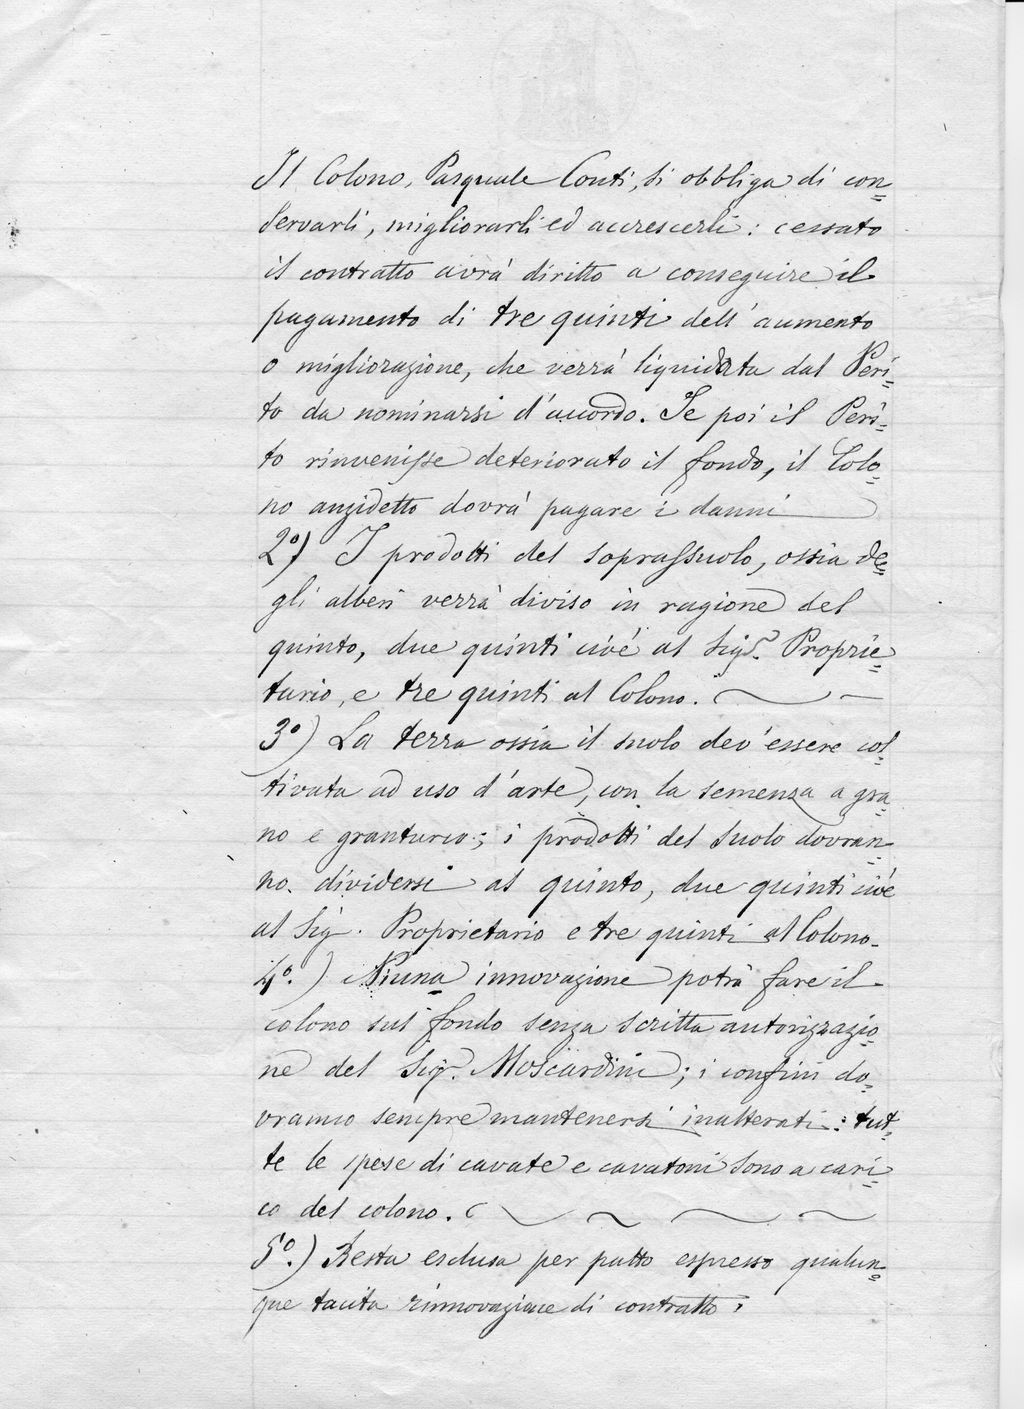 Il Colono, Pasquale Conti, si obbliga di con=
servarli, migliorarli ed accrescerli: cessato
il contratto avrà diritto a conseguire il
pagamento di tre quinti dell'aumento
o migliorazione, che verrà liquidata dal Peri=
to da nominarsi d'accordo. Se poi il Peri=
to rinvenisse deteriorato il fondo, il Colo=
no anzidetto dovrà pagare i danni
2º) I prodotti del soprassuolo, ossia de=
gli alberi verrà diviso in ragione del
quinto, due quinti cioè al Sigr. Proprie=
tario, e tre quinti al Colono.
3º) La terra ossia il suolo dev'essere col=
tivata ad uso d'arte, con la semenza a gra=
no e granturco; i prodotti del suolo dovran=
no dividersi al quinto, due quinti cioè
al Sig. Proprietario e tre quinti al Colono.
4º.) Niuna innovazione potrà fare il
colono sul fondo senza scritta autorizzazio=
ne del Sigr. Moscardini; i confini do=
vranno sempre mantenersi inalterati: tut=
te le spese di cavate e cavatoni sono a cari=
co del colono.
5º.) Resta esclusa per patto espresso qualun=
que tacita rinnovazione di contratto.